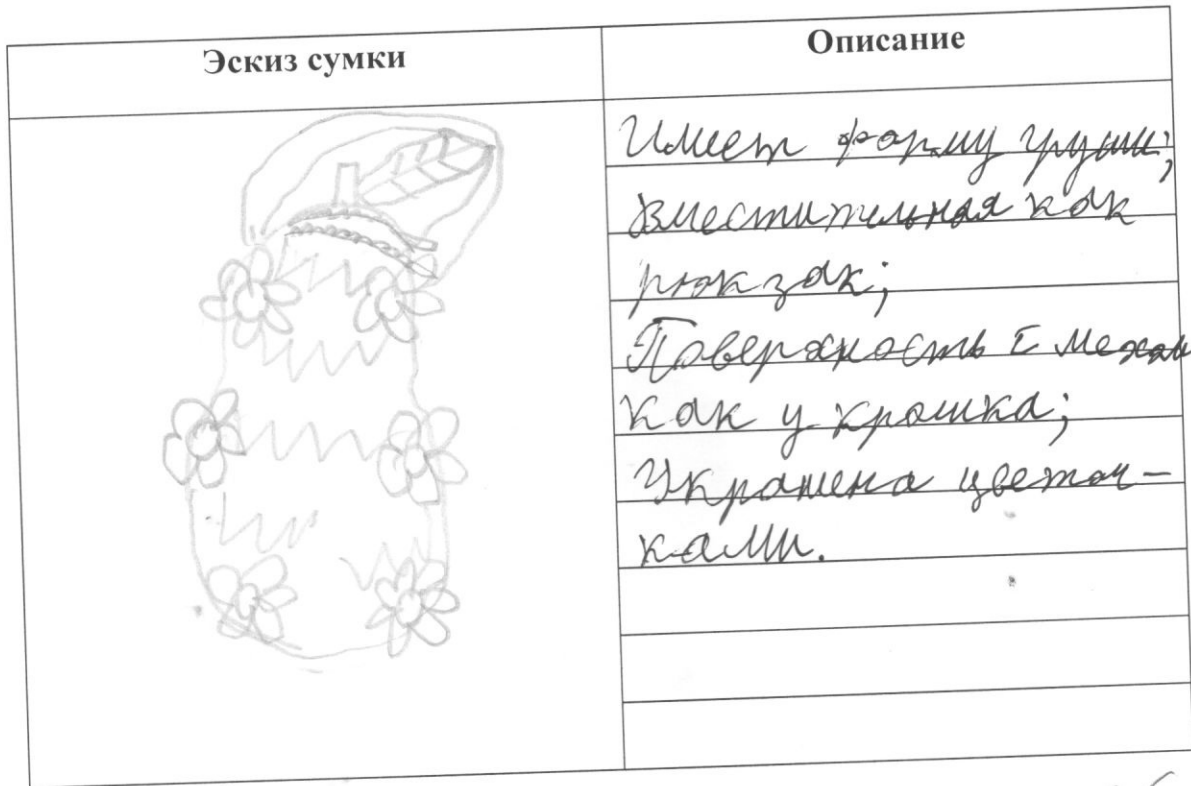 Эскиз сумки
Описание
Имеет форму груши;
вместительная как
рюкзак;
Поверхность с мехом
как у
Украшена цветоч-
ками.